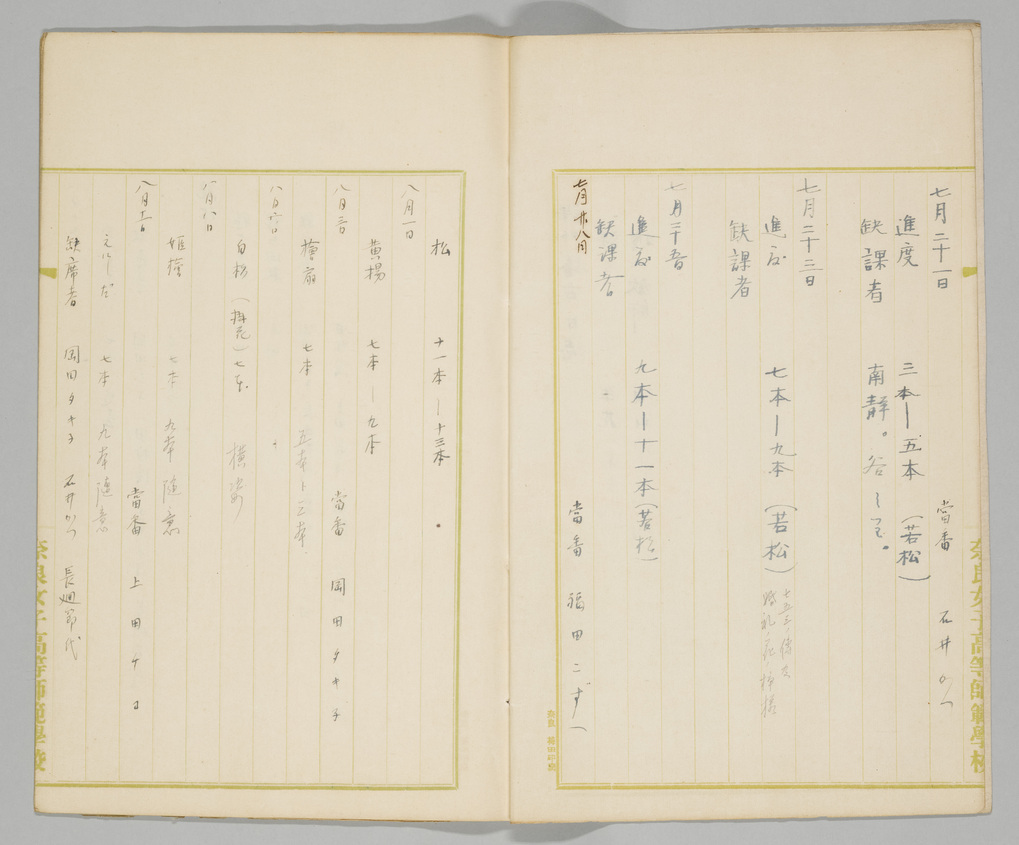 七月二十一日 當番 石井かつ
進度 三本―五本（若松）
缺課者 南靜。谷
七月二十三日
進度 七本―九本（若松）
七五三ノ傳
婚礼ノ花ノ
缺課者
七月二十五日
進度 九本―十一本（若松）
缺課者
七月廿八日 當番 福田こずへ
松 十一本―十三本
八月一日
黄楊 七本―九本
八月三日 當番 岡田タキ子
檜扇 七本 五本
八月六日
白松 七本 横姿
八月八日
姫檜 七本 九本 隨意
八月十一日 當番 上田
七本 九本 隨意
缺席者 岡田タキ子 石井かつ 長廻節代
奈良女子高等師範學校
奈良女子高等師範學校